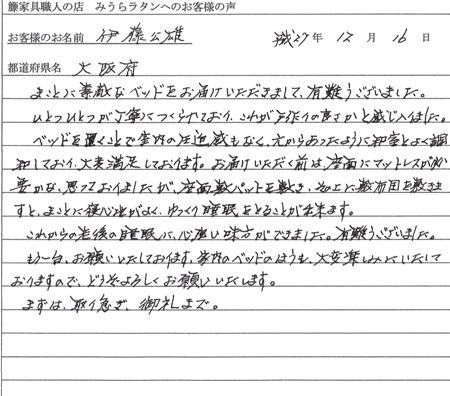 籐家具職人の店 みうらラタンへのお客様の声
お客様のお名前 伊藤公雄 平成27年 12月 16日
都道府県名 大阪府
まことに素敵なベッドをお届けいただきまして、有難うございました。
ひとつひとつが丁寧につくられており、これが手作りの良さかと感じ入りました。
ベッドを置くことで室内の圧迫感もなく、元からあったように和室とよく調
和しており、大変満足しております。お届けいただく前は、座面にマットレスが必
要かな、思っておりましたが、座面敷パットを敷き、その上に敷布団を敷きま
すと、まことに寝心地がよく、ゆっくり睡眠をとることが出来ます。
これからの老後の睡眠に、心強い味方ができました。有難うございました。
もう一台、お願いいたしております、家内のベッドのほうも、大変楽しみにいたして
おりますので、どうぞよろしくお願いいたします。
まずは、取り急ぎ、御礼まで。